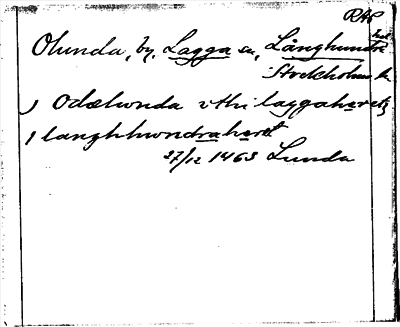 RAP
Olunda, by, Lagga sn, Långhundra
Stockholms
j Odælunda vthi laggahæretz
j langhhwndrahæret
27/12 1463 Lunda